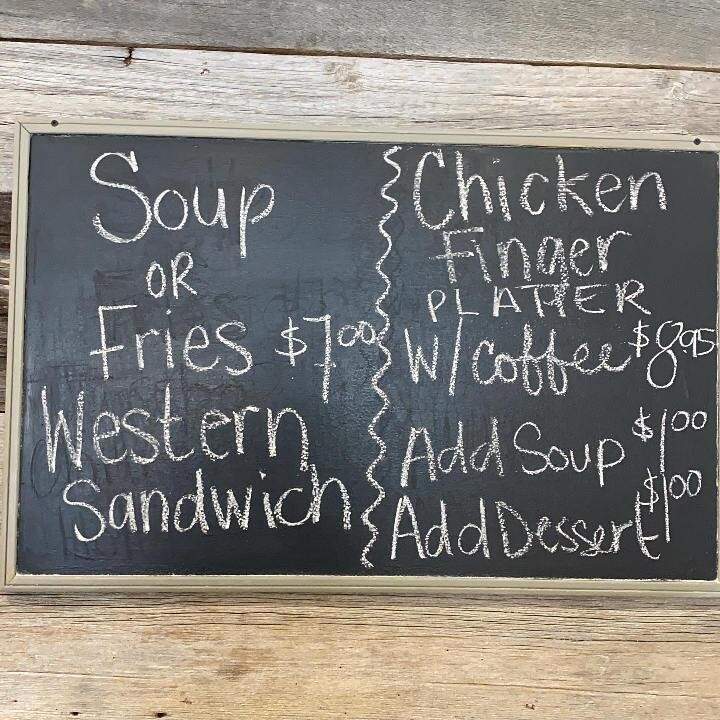 Soup
OR
Fries $7.00
Western
Sandwich
Chicken
Finger
PLATTER
W/coffee $8.95
Add Soup $1.00
Add Dessert $1.00